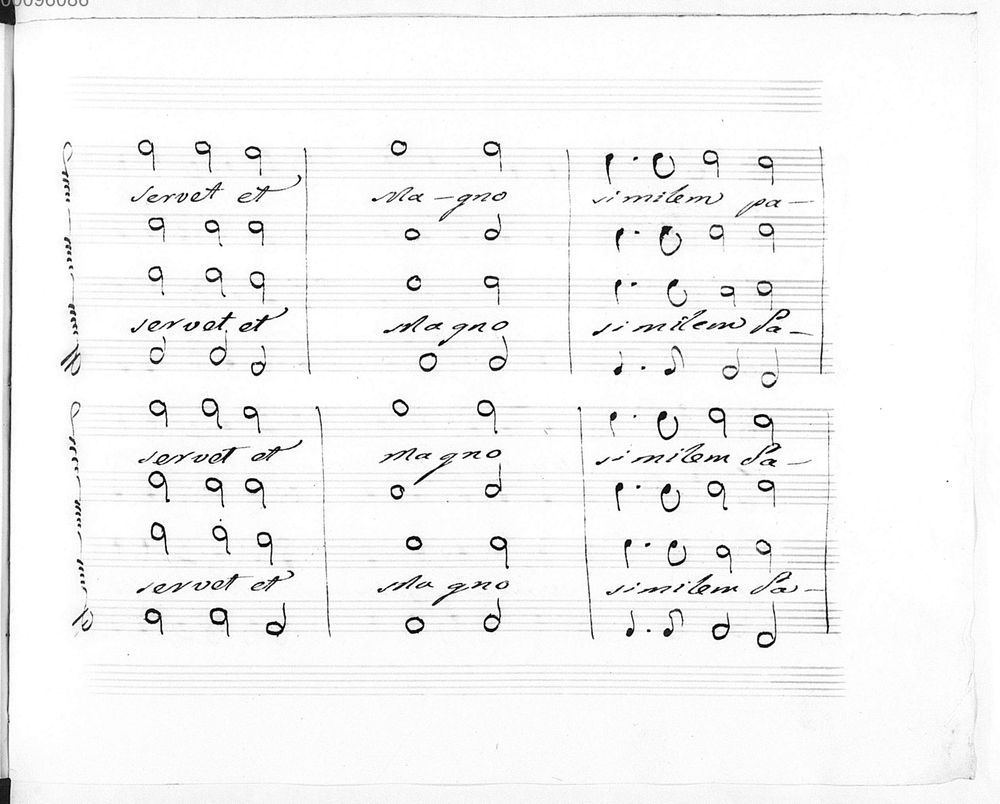 00096086
servet et Ma-gno similem pa-
servet et Magno similem Pa-
servet et magno similem Pa-
servet et Magno similem Pa-